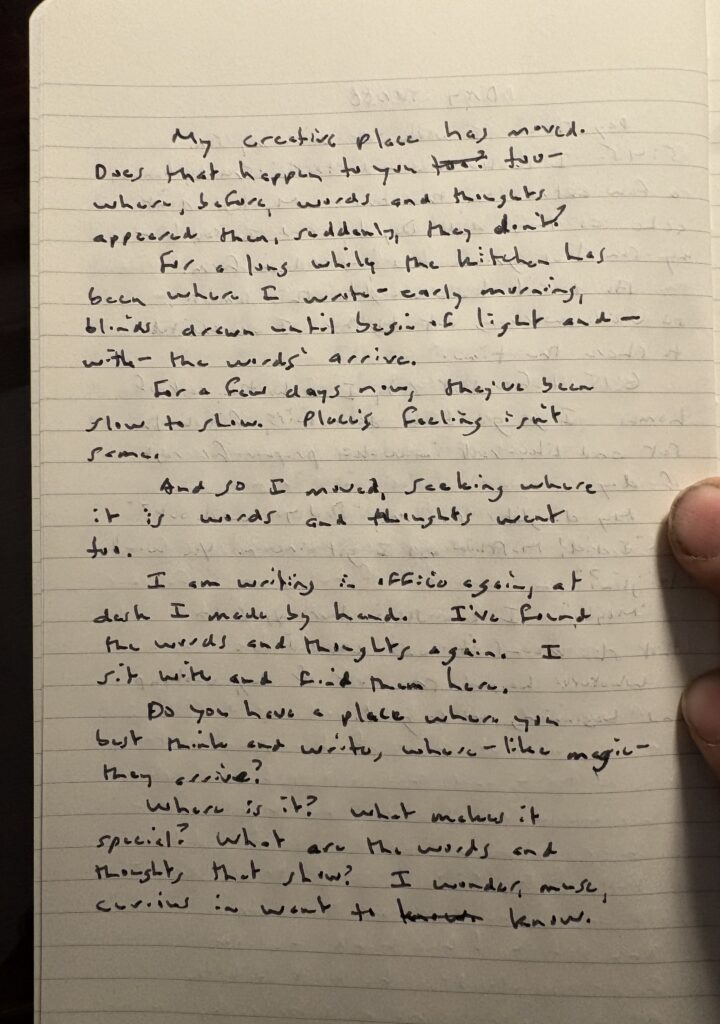 My creative place has moved.
Does that happen to you too? too—
where, before, words and thoughts
appeared then, suddenly, they don't?
For a long while the kitchen has
been where I wrote — early morning,
blinds drawn until begin of light and —
with — the words' arrive.
For a few days now, they've been
slow to show. Place's feeling isn't
same.
And so I moved, seeking where
it is words and thoughts went
too.
I am writing in office again, at
desk I made by hand. I've found
the words and thoughts again. I
sit with and find them here.
Do you have a place where you
best think and write, where — like magic —
they arrive?
Where is it? What makes it
special? What are the words and
thoughts that show? I wonder, muse,
curious in want to known know.